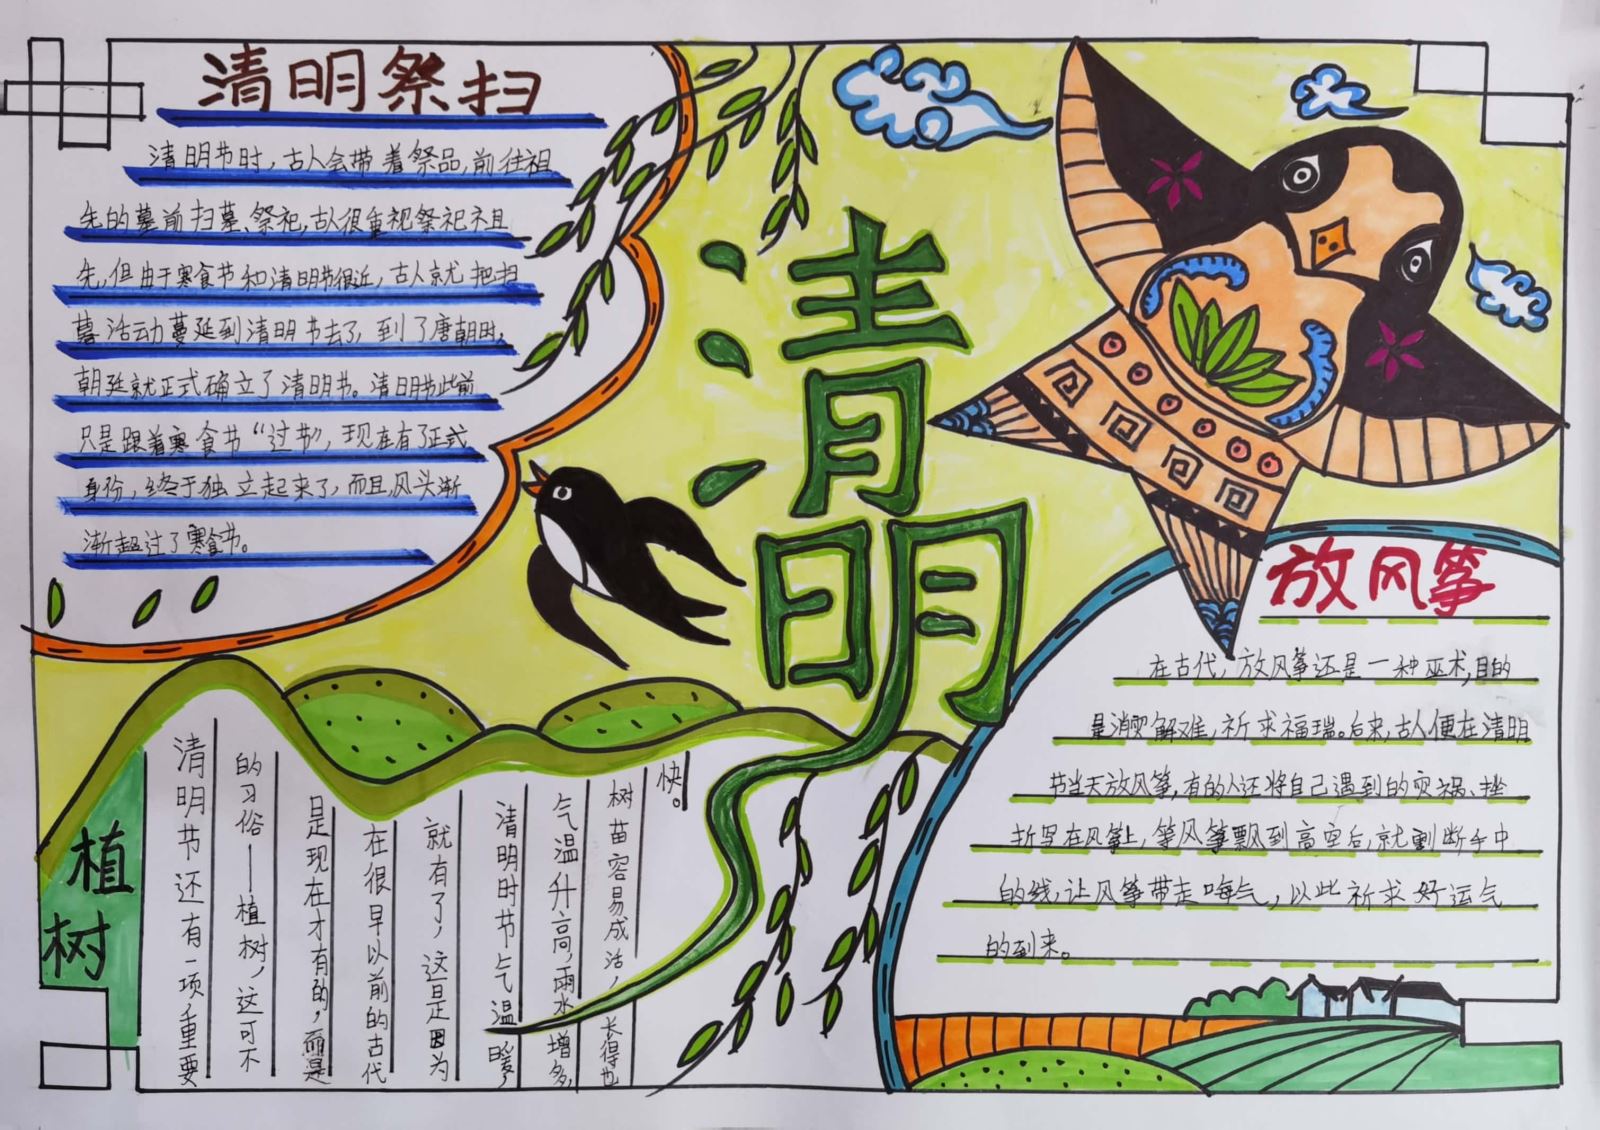 清明祭扫
清明节时,古人会带着祭品,前往祖
先的墓前扫墓、祭祀,古人很重视祭祀祖
先,但由于寒食节和清明节很近,古人就把扫
墓活动蔓延到清明节去了,到了唐朝时,
朝廷就正式确立了清明节。清明节此前
只是跟着寒食节“过节”,现在有了正式
身份,终于独立起来了,而且风头渐
渐超过了寒食节。
清明
放风筝
在古代,放风筝还是一种巫术,目的
是消灾解难,祈求福瑞。后来,古人便在清明
节当天放风筝,有的人还将自己遇到的灾祸、挫
折写在风筝上,等风筝飘到高空后,就割断手中
的线,让风筝带走晦气,以此祈求好运气
的到来。
植树
清明节还有一项重要
的习俗——植树,这可不
是现在才有的,而是
在很早以前的古代
就有了,这是因为
清明时节气温暖,
气温升高,雨水增多,
树苗容易成活,长得也
快。